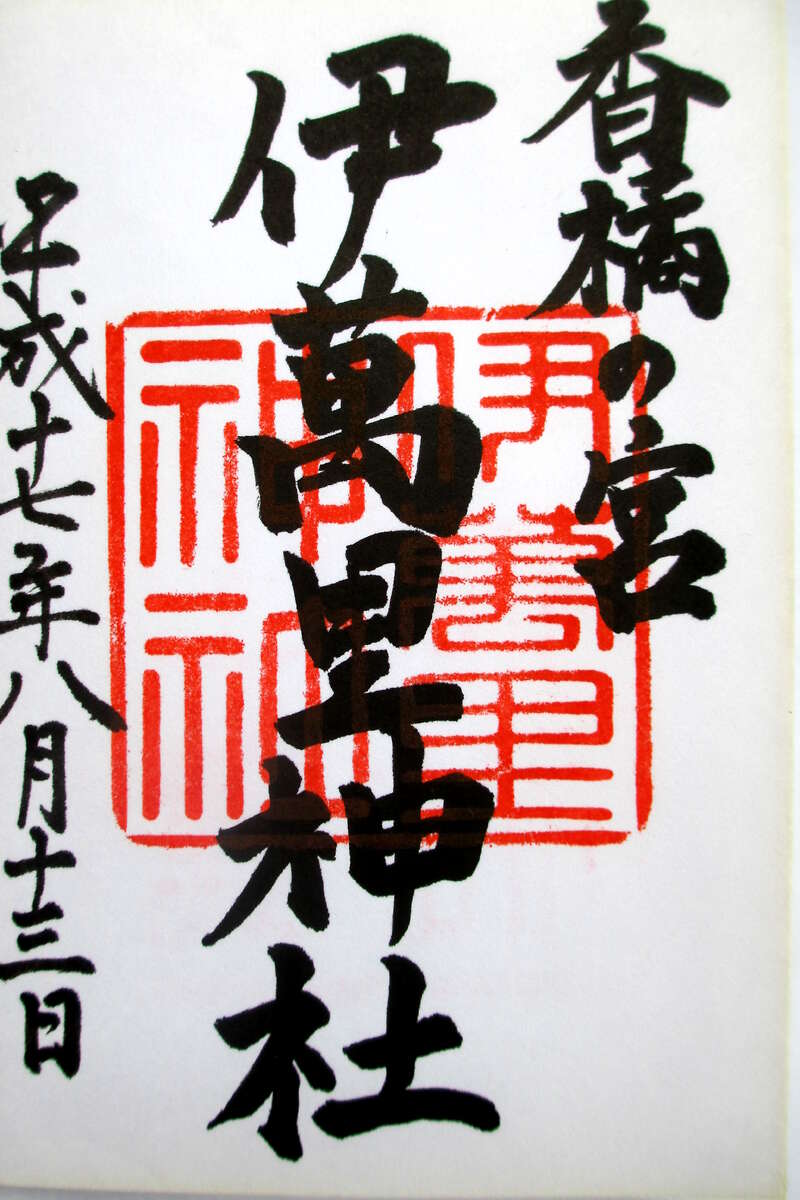 香橘の宮
伊萬里神社
平成十七年八月十三日
伊萬里
神社